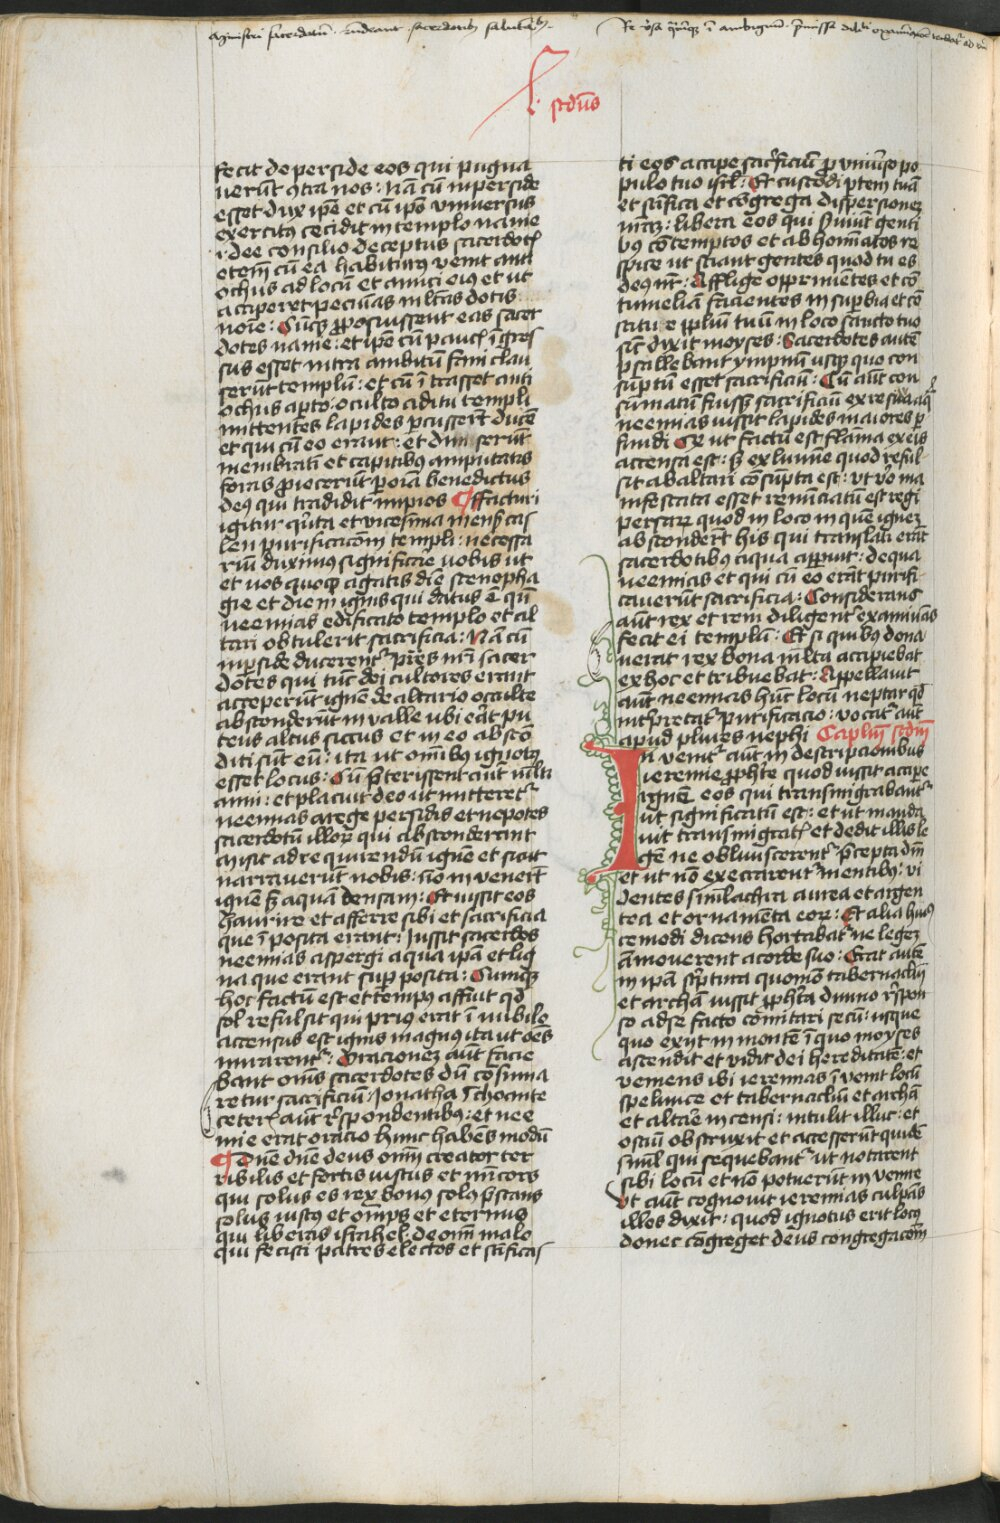 L. scdus
fecit de perside eos qui pugna
uerūt ꝯtra nos : nā cū in perside
esset dux ipē et cū ipō vniuersus
exercitus cecidit in templo nanie
dee consilio deceptus sacerdotꝭ
etem̄ cū ea habiturus venit anti
ochus ad locū et amici eius et ut
acciperet pecunias mltas dotis
noīe : Cūqꝫ ꝓposuissent eas sacer
dotes nanie : et ipē cū paucꝭ īgres
sus esset intra ambitū fani clau
serūt templū : et cū ītrasset anti
ochus aꝑto occulto aditu templi
mittentes lapides ꝑcusserūt ducē
et qui cū eo erant : et diuiserūt
membratī et capitibus amputatis
foras ꝓiecerūt ꝑ oīa benedictus
deus qui tradidit impios ¶ ffacturi
igitur qͥnta et vicesima mēsꝭ cas
leu purificacōm templi : necessa
riū duximus significare uobis ut
et uos quoqꝫ agatis diē scenopha
gie et diem ignis qui datus ē qn̄
neemias edificato templo et al
tari obtulerit sacrificia : Nā cū
in ꝑside ducerentᷣ pr̄es nr̄i sacer
dotes qui tūc dei cultores erant
acceperūt ignē de altario occulte
absconderūt in valle ubi erat pu
teus altus siccus et in eo abscō
diti sūt eū : ita ut om̄ibus ignotus
esset locus : Cū p̄terissent aūt multi
anni : et placuit deo ut mitteretᷣ
neemias a rege persidis et nepotes
sacerdotū illoꝝ qui absconderant
misit ad requirendū ignē et sicut
narrauerūt nobis : nō inuenerūt
ignē sꝫ aquā densam : Et iussit eos
haurire et afferre sibi et sacrificia
que īposita erant : iussit sacerdos
neemias aspergi aqua ipā et lig
na que erant suꝑposita : Cumqꝫ
hoc factū est et tempus affuit qd̄
sol refulsit qui prius erat ī nubilo
accensus est ignis magnus ita ut oēs
mirarentᷣ : Oracionem aūt facie
bant om̄s sacerdotes dū cōsūma
retur sacrificiū : Jonatha īchoante
ceterꝭ aūt rn̄spondentibus : et nee
mie erat oracio hunc habēs modū
¶ Dn̄e dn̄e deus om̄i creator ter
ribilis et fortis iustus et mi̅cors
qui solus es rex bonus solus p̄stans
solus iustus et om̄ps et eternus
qui liberas israhel de om̄i malo
qui fecisti patres electos et sc̄ificas
ti eos accipe sacrificiū ꝓ vniuso po
pulo tuo isrl̄ : Et custodi ꝑtem tuā
et sc̄ifica et cōgrega dispersionem
nr̄am : libera eos qui s̄uiunt genti
bus cōtemptos et abhom̄atos re
spice ut sciant gentes quod tu es
deus nr̄ : Afflige opprimentes et cō
tumeliam facientes in suꝑbia et cō
stitue ipl̄m tuū in loco sancto tuo
sicut dixit moyses : Sacerdotes autē
psallebant ympnū usqꝫ quo con
sūptū esset sacrificiū : Cū aūt con
sūmatū fuisset sacrificiū ex residua aqͣ
neemias iussit lapides maiores ꝑ
fundi Qͫ ut factū est flāma ex eis
accensa est : sꝫ ex lumine quod reful
sit ab altari cōsūpta est : Ut v̄o ma
nifestata esset renūciatū est regi
persarꝝ quod in loco in quē ignem
absconderūt his qui translati erāt
sacerdotibus aqua apparuit : de qua
neemias et qui cū eo erāt purifi
cauerūt sacrificia : Considerans
aūt rex et rem diligentᷣ examinans
fecit ei templū : Et si quibus dona
uerat rex bona mlta accipiebat
ex hoc et tribuebat : Appellauit
aūt neemias hūc locū neptar qd̄
intᷣpretatᷣ purificacio : vocatᷣ aūt
apud plures nephi Caplm̄ scdm̄
In venitᷣ aūt in descripcionibus
ieremie ꝓphete quod iussit accipe
ignem eos qui transmigrabantᷣ
ut significatū est : et ut manda
uit transmigratꝭ et dedit illis le
gē ne obliuiscerentᷣ p̄cepta dn̄i
et ut nō exerrarentᷣ mentibus : vi
dentes simlachra aurea et argen
tea et ornamēta eoꝝ : Et alia huius
cemodi dicens hortabatᷣ ne legem
āmouerent a corde suo : Erat autē
in ipā sc̄ptura quomō tabernaculū
et archā iussit ꝓphēta diuino rn̄spon
so ad se facto cōmitari secū : usque
quo exijt in montē ī quo moyses
ascendit et vidit dei hereditatē : et
veniens ibi ieremias īvenit locū
spelunce et tabernaclm̄ et archā
et altare incensi : intulit illuc : et
ostiū obstruxit et accesserūt quidā
siml̄ qui sequebantᷣ ut notarent
sibi locū et nō potuerūt invenire
Ut aūt cognouit ieremias culpās
illos dixit : quod ignotus erit locus
donec cōgreget deus congregacōm